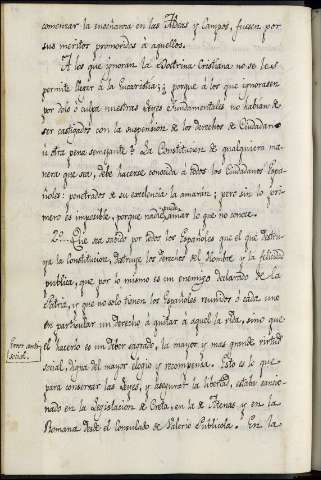 comenzar la enseñanza en las Aldeas y Campos, fuesen por
sus meritos promovidos á aquellos.
A los que ignoran la Doctrina Cristiana no se les
permite llegar á la Eucaristía; ¿porque á los que ignorasen
por dolo ó culpa nuestras Leyes fundamentales no habian de
ser castigados con la suspension de los derechos de Ciudadano
ú otra pena semejante? La Constitucion de qualquiera ma-
nera que sea, debe hacerse conocida á todos los Ciudadanos Espa-
ñoles: penetrados de su excelencia la amarán; pero sin lo pri-
mero es imposible, porque nadie puede amar lo que no conoce.
2º Que sea sabido por todos los Españoles que el que destru-
ya la Constitucion, destruye los Derechos del Hombre y la felicidad
publica, que por lo mismo es un enemigo declarado de la
Patria, y que no solo tienen los Españoles reunidos ó cada uno
en particular un derecho á quitar a aquel la vida, sino que
el hacerlo es un deber sagrado, la mayor y mas grande virtud
social, digna del mayor elogio y recompensa. Esto es lo que
para conservar las Leyes, y asegurar la libertad, estaba sancio-
nado en la Legislacion de Creta, en la de Atenas y en la
Romana desde el Consulado de Valerio Publicola. En la
Error anti-
social.